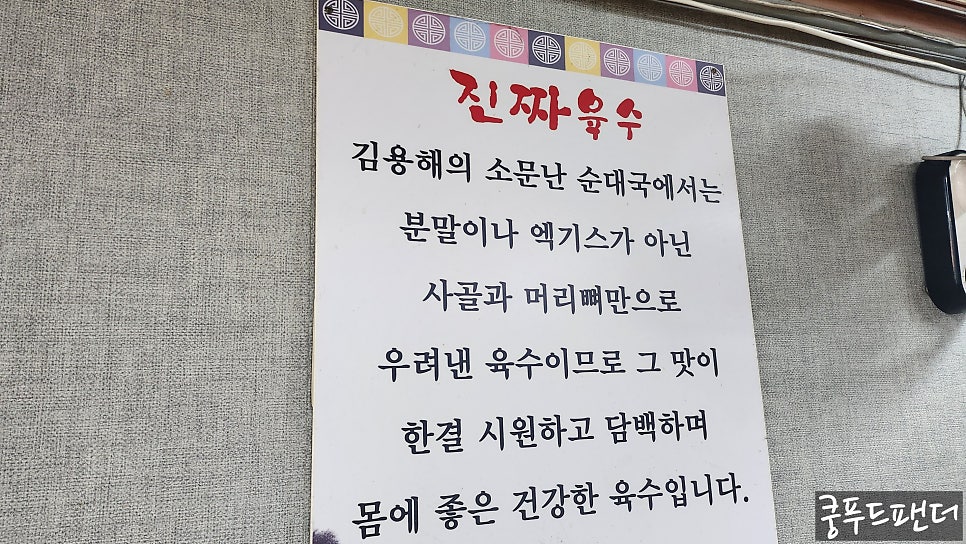 진짜육수
김용해의 소문난 순대국에서는
분말이나 엑기스가 아닌
사골과 머리뼈만으로
우려낸 육수이므로 그 맛이
한결 시원하고 담백하며
몸에 좋은 건강한 육수입니다.
쿵푸드팬더